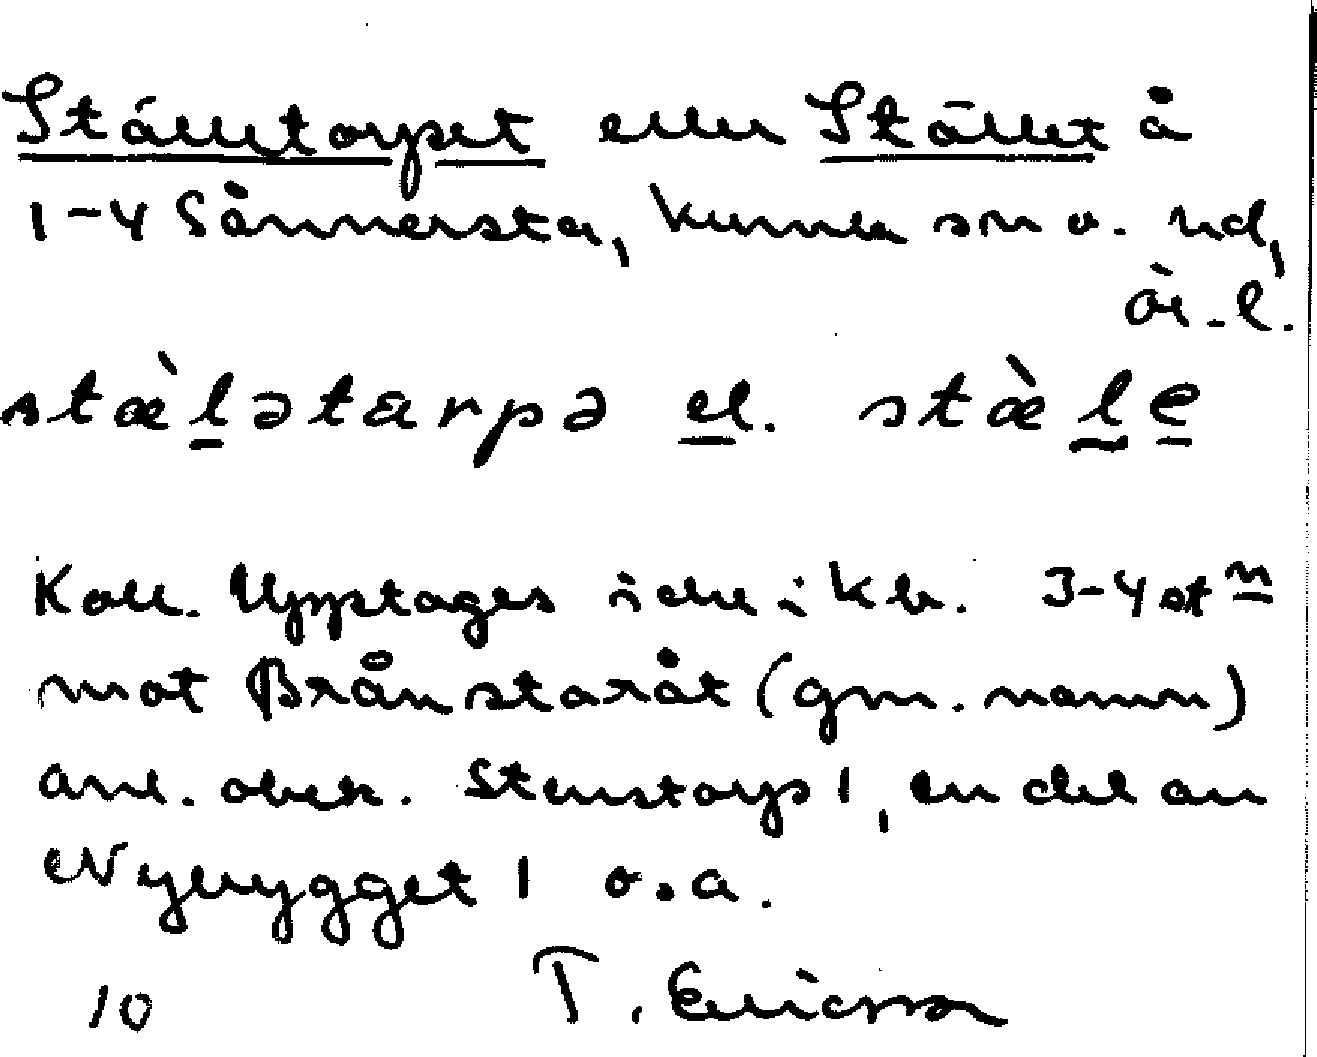 Ställetorpet eller Stället å
1-4 Sånnersta, Kumla sn o. hd,
Ör. l.
stæ̀lətarpə el. stæ̀le
Koll. Upptages icke i kb. 3-4 st n
mot Brånstaråt (gm. namn)
anl. obek. Stenstorp 1, en del av
Nybygget 1 o.a.
10 T. Ericsson